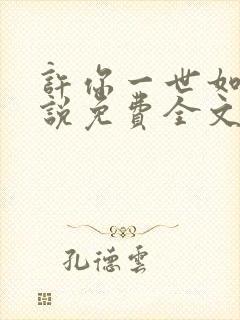 許你一世如
說免費全文
孔德雲